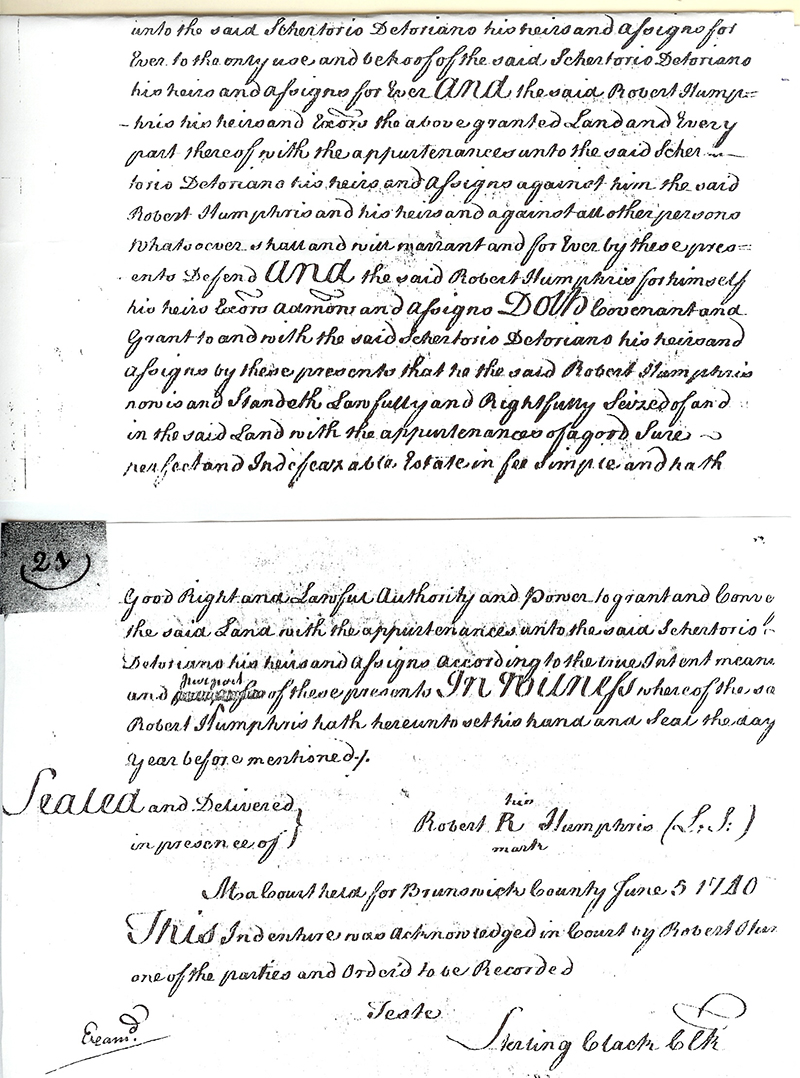 unto the said Schertorio Detoriano his heirs and assigns for
Ever to the only use and behoof of the said Schertorio Detoriano
his heirs and assigns for Ever And the said Robert Hump=
-hris his heirs and Exors the above granted Land and Every
part thereof with the appurtenances unto the said Scher---
torio Detoriano his heirs and assigns against him the said
Robert Humphris and his heirs and against all other persons
whatsoever shall and will warrant and for Ever by these pres=
ents Defend And the said Robert Humphris for himself
his heirs Exors Admons and assigns Doth Covenant and
Grant to and with the said Schertorio Detoriano his heirs and
assigns by these presents that he the said Robert Humphris
now is and Standeth Lawfully and Rightfully Seized of and
in the said Land with the appurtenances of a good Sure
perfect and Indefeazable Estate in fee Simple and hath
21
Good Right and Lawful Authority and Power to grant and Conve
the said Land with the appurtenances unto the said Schertorio
Detoriano his heirs and assigns according to the true Intent meani
purport
and of these presents In Witness whereof the sa
Robert Humphris hath hereunto set his hand and Seal the day
Year before mentioned/.
Sealed and Delivered
in presence of }
his
Robert R Humphris (L.S.)
mark
At a Court held for Brunswick County June 5 1740
This Indenture was Acknowledged in Court by Robert Hum
one of the parties and Order'd to be Recorded
Teste
Examd.
Sterling Clack Clk